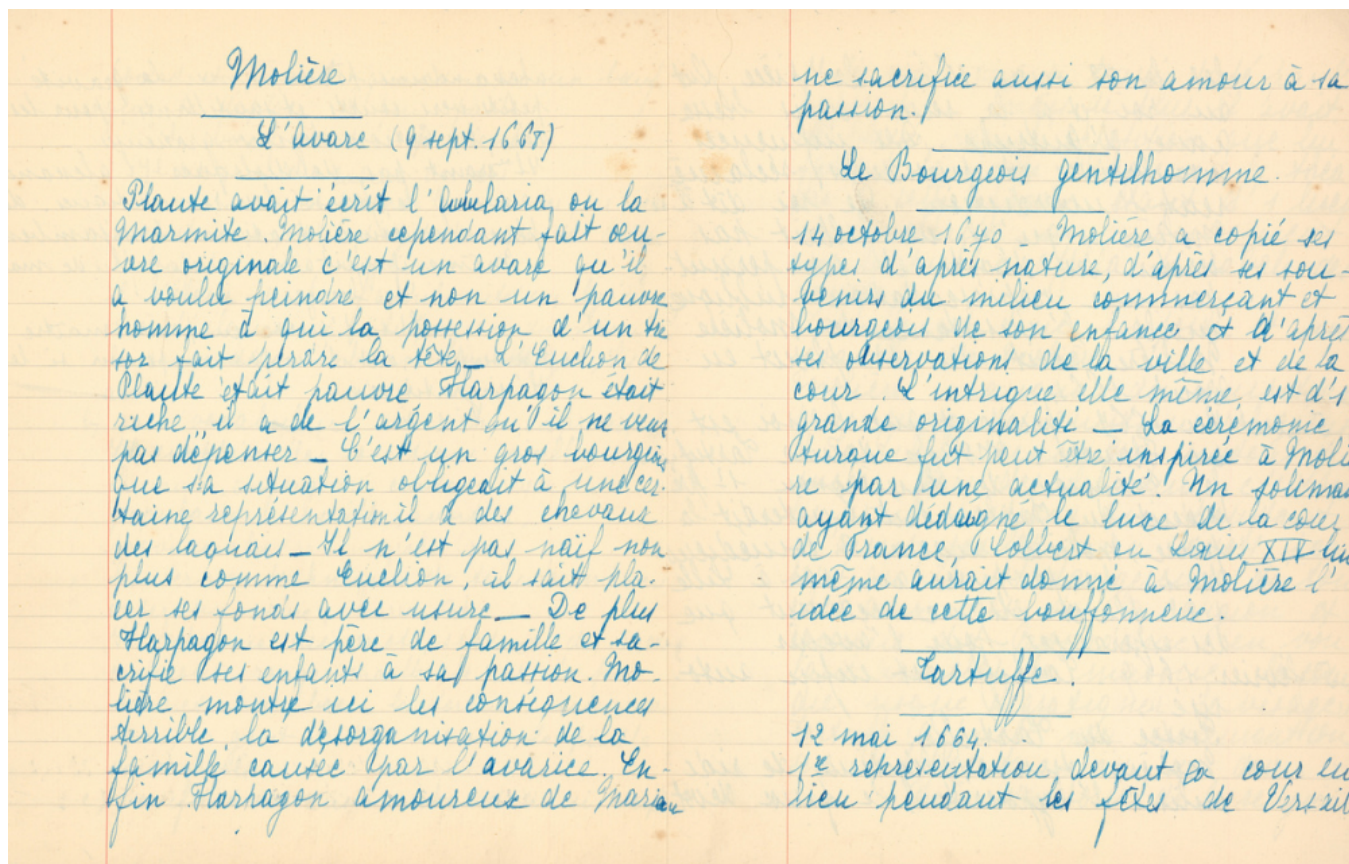 Molière
L'Avare (9 sept. 1668)
Plaute avait écrit l'Aulularia ou la
Marmite. Molière cependant fait œu-
vre originale c'est un avare qu'il
a voulu peindre et non un pauvre
homme à qui la possession d'un tré
sor fait perdre la tête. L'Euclion de
Plaute était pauvre Harpagon était
riche, il a de l'argent qu'il ne veut
pas dépenser _ C'est un gros bourgeois
que sa situation obligeait à une cer-
taine représentation il a des chevaux
des laquais _ Il n'est pas naïf non
plus comme Euclion, il sait pla-
cer ses fonds avec usure _ De plus
Harpagon est père de famille et sa-
crifie ses enfants à sa passion. Mo-
lière montre ici les conséquences
terrible, la désorganisation de la
famille causée par l'avarice. En-
fin Harpagon amoureux de Marian
ne sacrifie aussi son amour à sa
passion./
Le Bourgeois gentilhomme.
14 octobre 1670 _ Molière a copié ses
types d'après nature, d'après ses sou-
venirs du milieu commerçant et
bourgeois de son enfance et d'après
ses observations de la ville et de la
cour. L'intrigue elle même, est d'1
grande originalité _ La cérémonie
turque fut peut être inspirée à Moliè
re par une actualité. Un soliman
ayant dédaigné le luxe de la cour
de France, Colbert ou Louis XIV lui
même aurait donné à Molière l'
idée de cette bouffonnerie.
Tartuffe.
12 mai 1664.
1re représentation, devant la cour eu
lieu pendant les fêtes de Versail